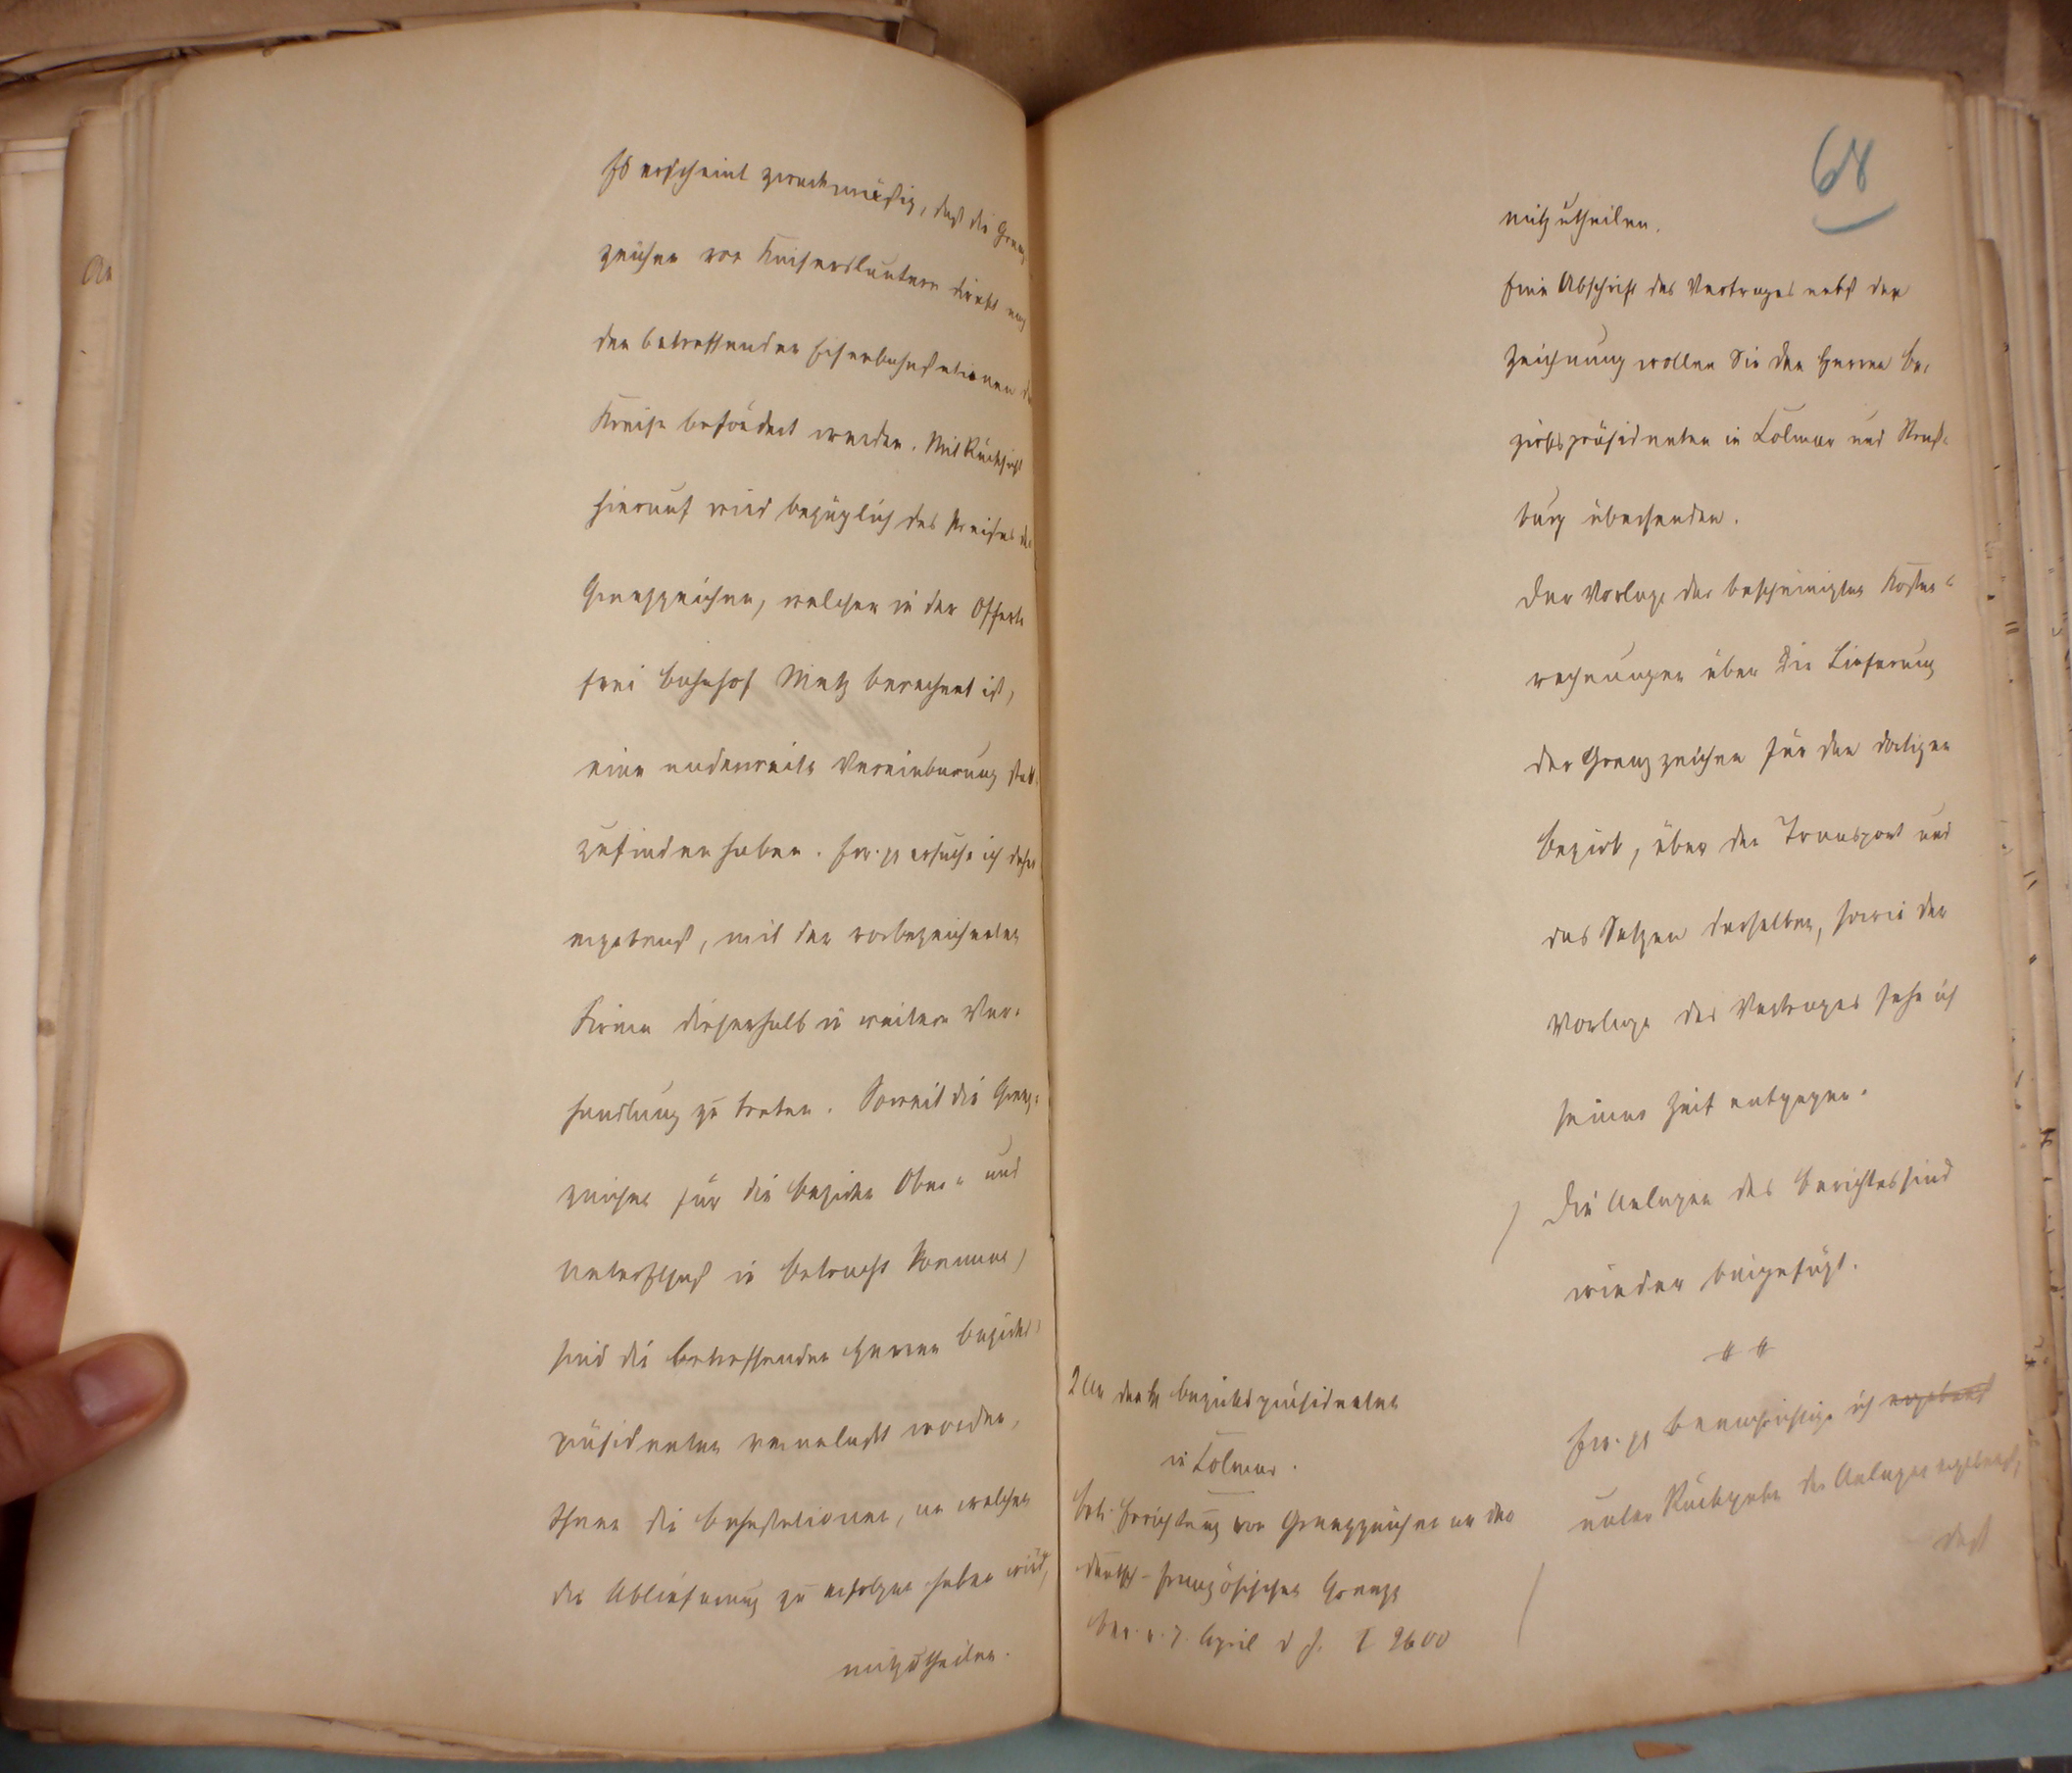 Es erscheint zweckmäßig, daß die Grenz
zeichen von Kaiserslautern direkt nach
den betreffenden Eisenbahnstationen der
Kreise befördert werden. Mit Rücksicht
hierauf wird bezüglich des Preises der
Grenzzeichen, welcher in der Offerte
frei Bahnhof Metz berechnet ist,
eine anderweite Vereinbarung statt
zufinden haben. Ew. pp ersuche ich daher
ergebenst, mit der vorbezeichneten
Firma dieserhalb in weitere Ver-
handlung zu treten. Soweit die Grenz-
zeichen für die Bezirke Ober- und
Unterelsaß in Betracht kommen,
sind die betreffenden Herren Bezirks-
präsidenten veranlaßt worden,
Ihnen die Bahnstationen, an welchen
die Ablieferung zu erfolgen haben wird,
mitzutheilen.
68
mitzutheilen.
Eine Abschrift des Vertrages nebst der
Zeichnung wollen Sie den Herren Be-
zirkspräsidenten in Colmar und Straß-
burg übersenden.
Der Vorlage der bescheinigten Kosten-
rechnungen über die Lieferung
der Grenzzeichen für den dortigen
Bezirk, über den Transport und
das Setzen derselben, sowie der
Vorlage des Vertrages sehe ich
seiner Zeit entgegen.
Die Anlagen des Berichtes sind
wieder beigefügt.
2 An den H Bezirkspräsidenten
in Colmar.
Betr. Errichtung von Grenzzeichen an der
deutsch-französischen Grenze
Ber. v. 7. April d J. I 2600
Ew. pp benachrichtige ich ergebenst
unter Rückgabe der Anlagen ergebenst,
daß
An